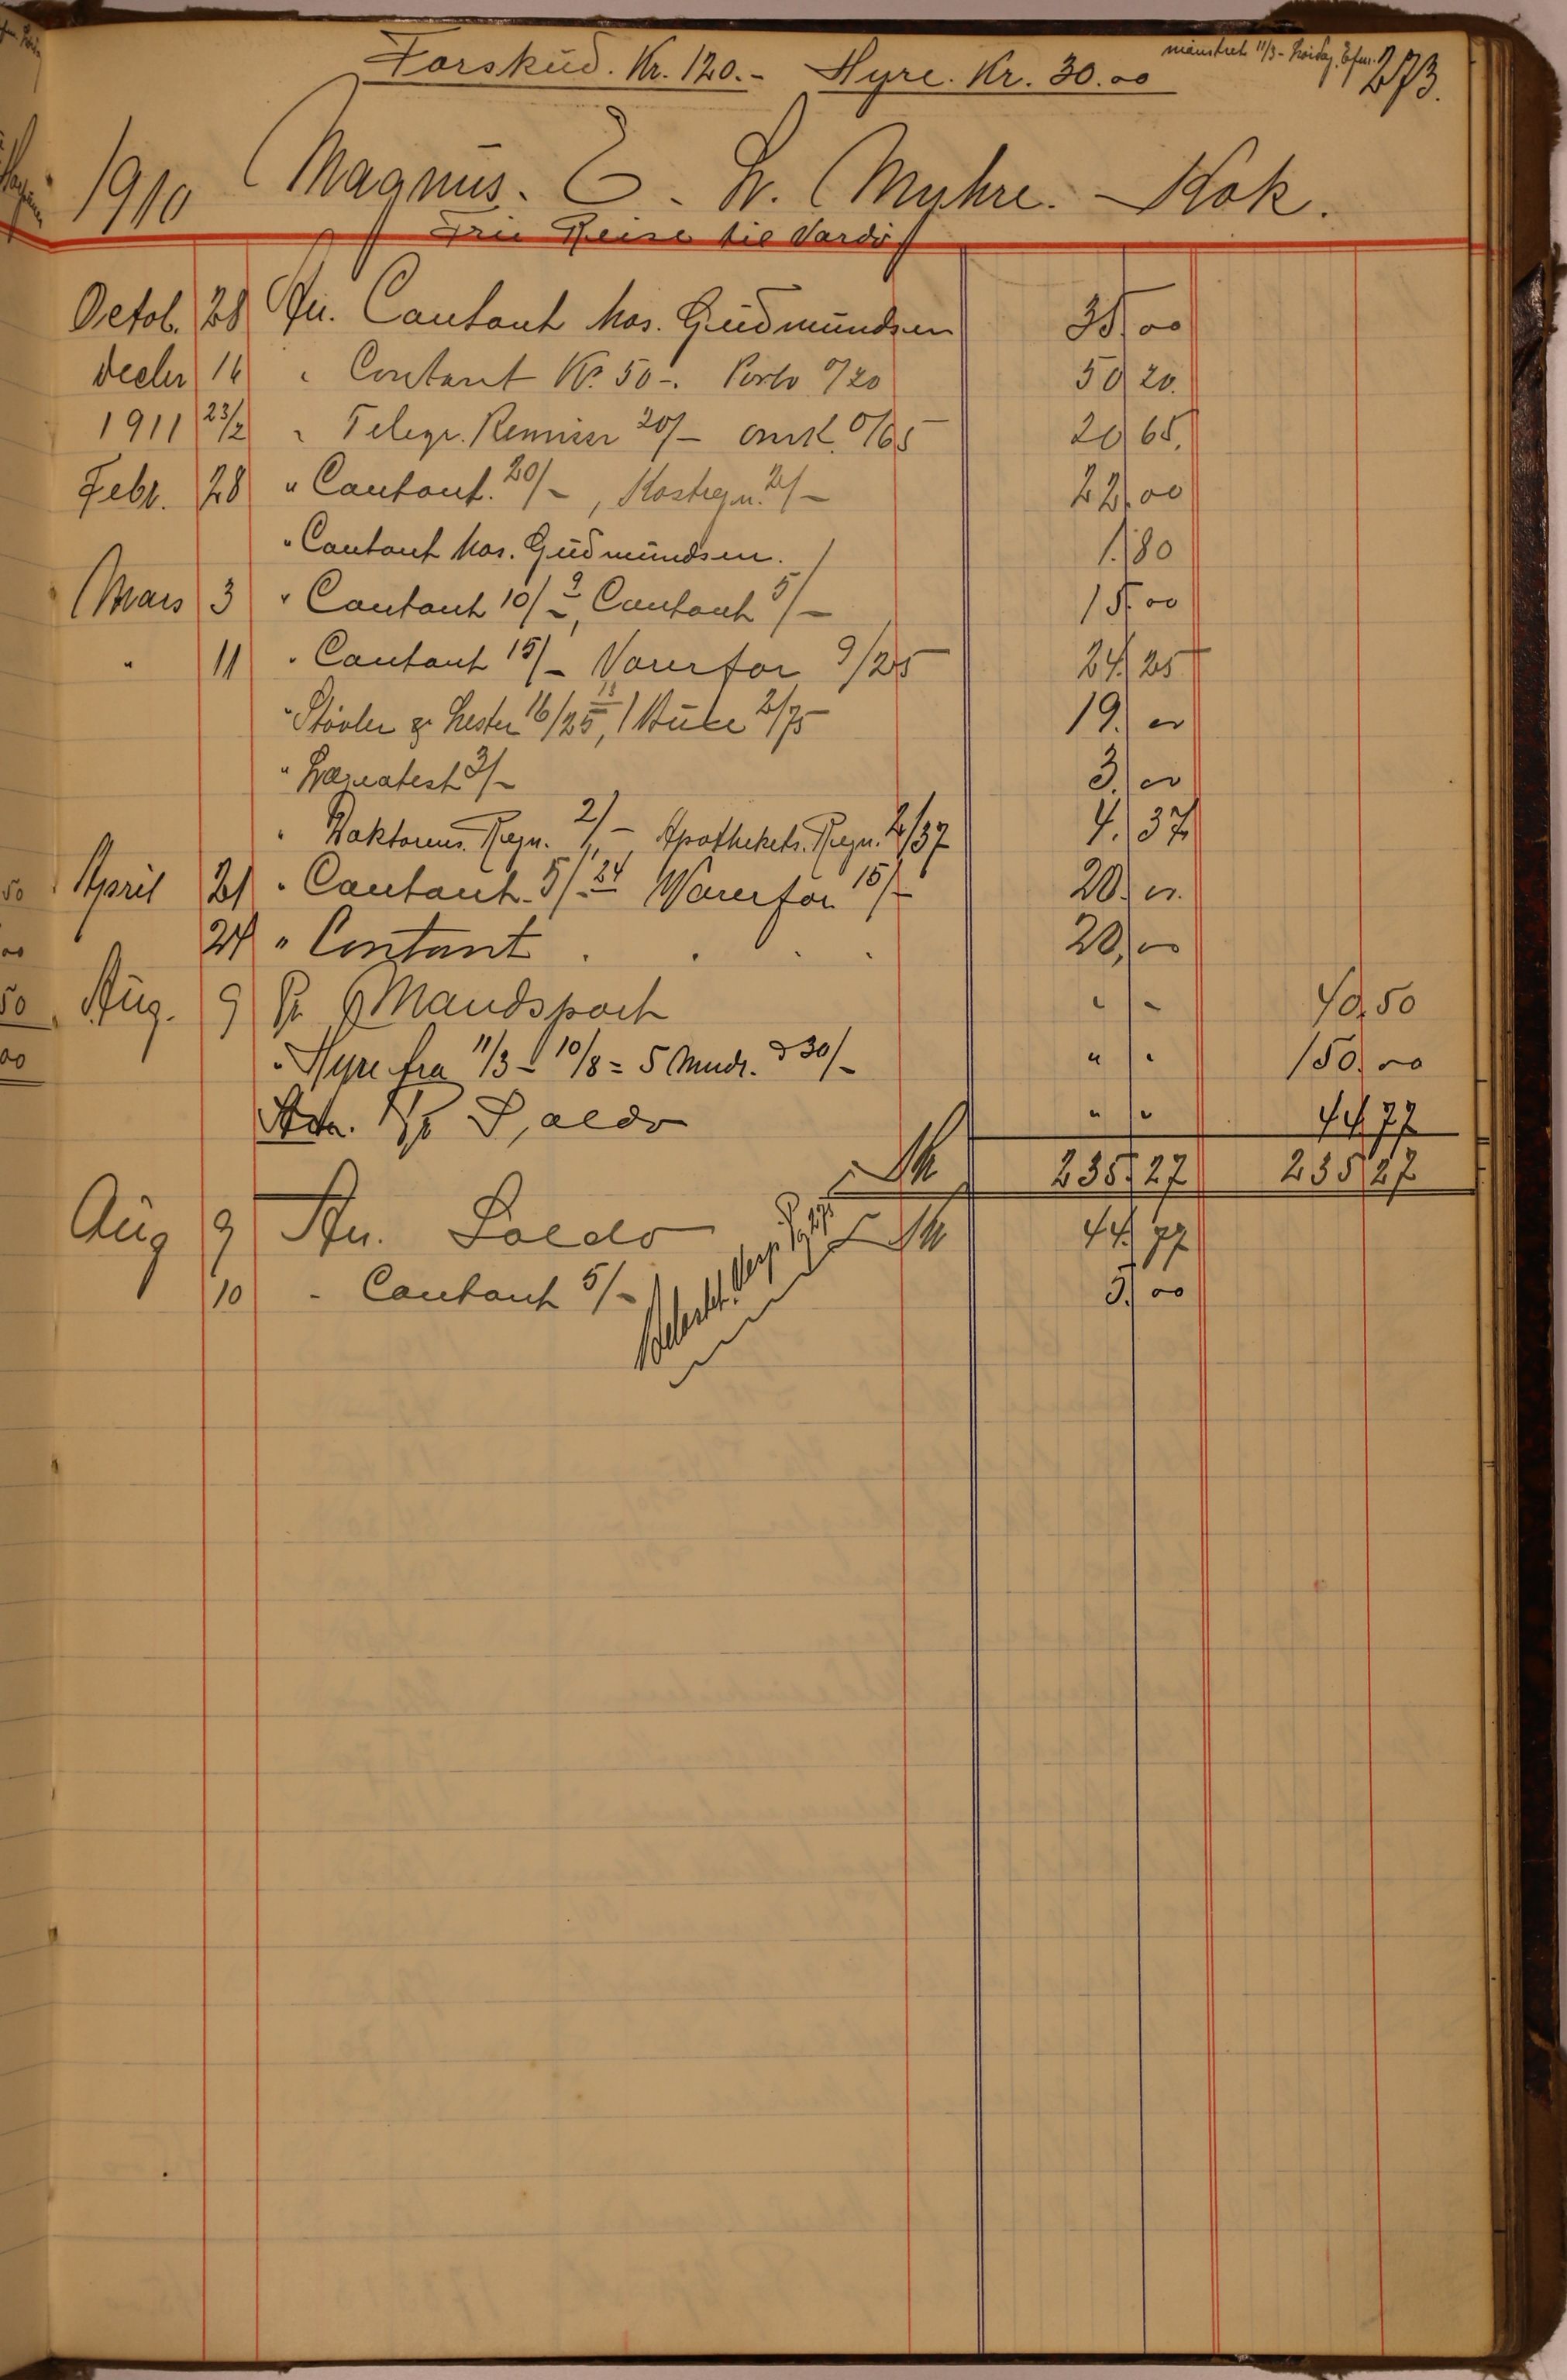 Forskud. Kr. 120.- Hyre. Kr. 30.00
mønstret 11/3 - 273.
1910 Magnus. E. L. Myhre. - Kok.
Frie Reise til Vardö
Octob. 28 An. Contant hos. Gudmundsen 35,00
Decbr 16 " Contant Kr. 50-. Porto 0/20 50 20.
1911 23/2 " Telegr. Remisse 20/- omk. 0/65 20 65.
Febr. 28 " Contant. 20/-, Kostregn. 2/- 22,00
" Contant hos. Gudmundsen. 1.80
Mars 3 " Contant 10/- 9, Contant 5/- 15.00
" 11 " Contant 15/- Varer for 9/25 24.25
" Støvler & Lester 16/25, 13 1 Buxe 2/75 19.00
" Lægeatest 3/- 3.00
" Doktorens. Regn. 2/- Apothekets. Regn. 2/37 4.37
April 21 " Contant. 5/- 24 Varer for 15/- 20.00
24 " Contant . . . . 20,00
Aug. 9 Pr Mandspart " - 40,50
" Hyre fra 11/3 - 10/8 = 5 Mndr. à 30/- " " 150.00
Pr Saldo " " 44,77
235.27 235 27
Aug 9 An. Saldo 44.77
10 " Contant 5/- 5.00